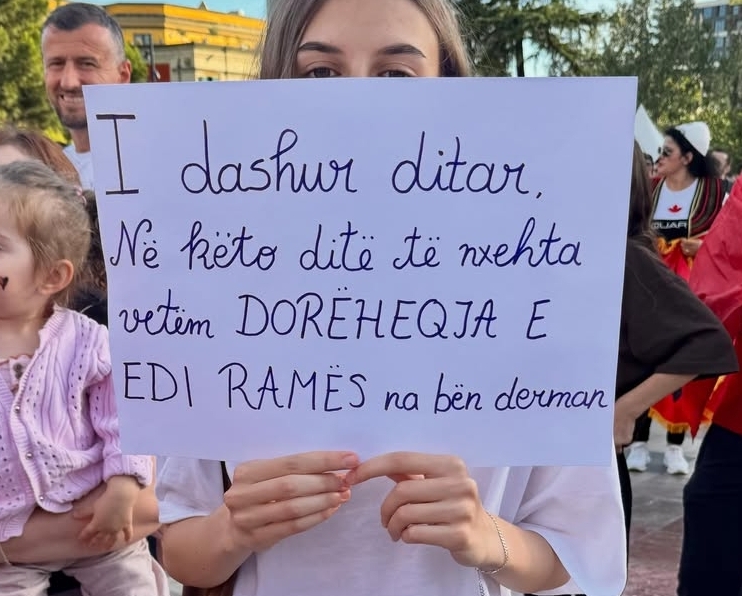 I dashur ditar,
Në këto ditë të nxehta
vetëm DORËHEQJA E
EDI RAMËS na bën derman